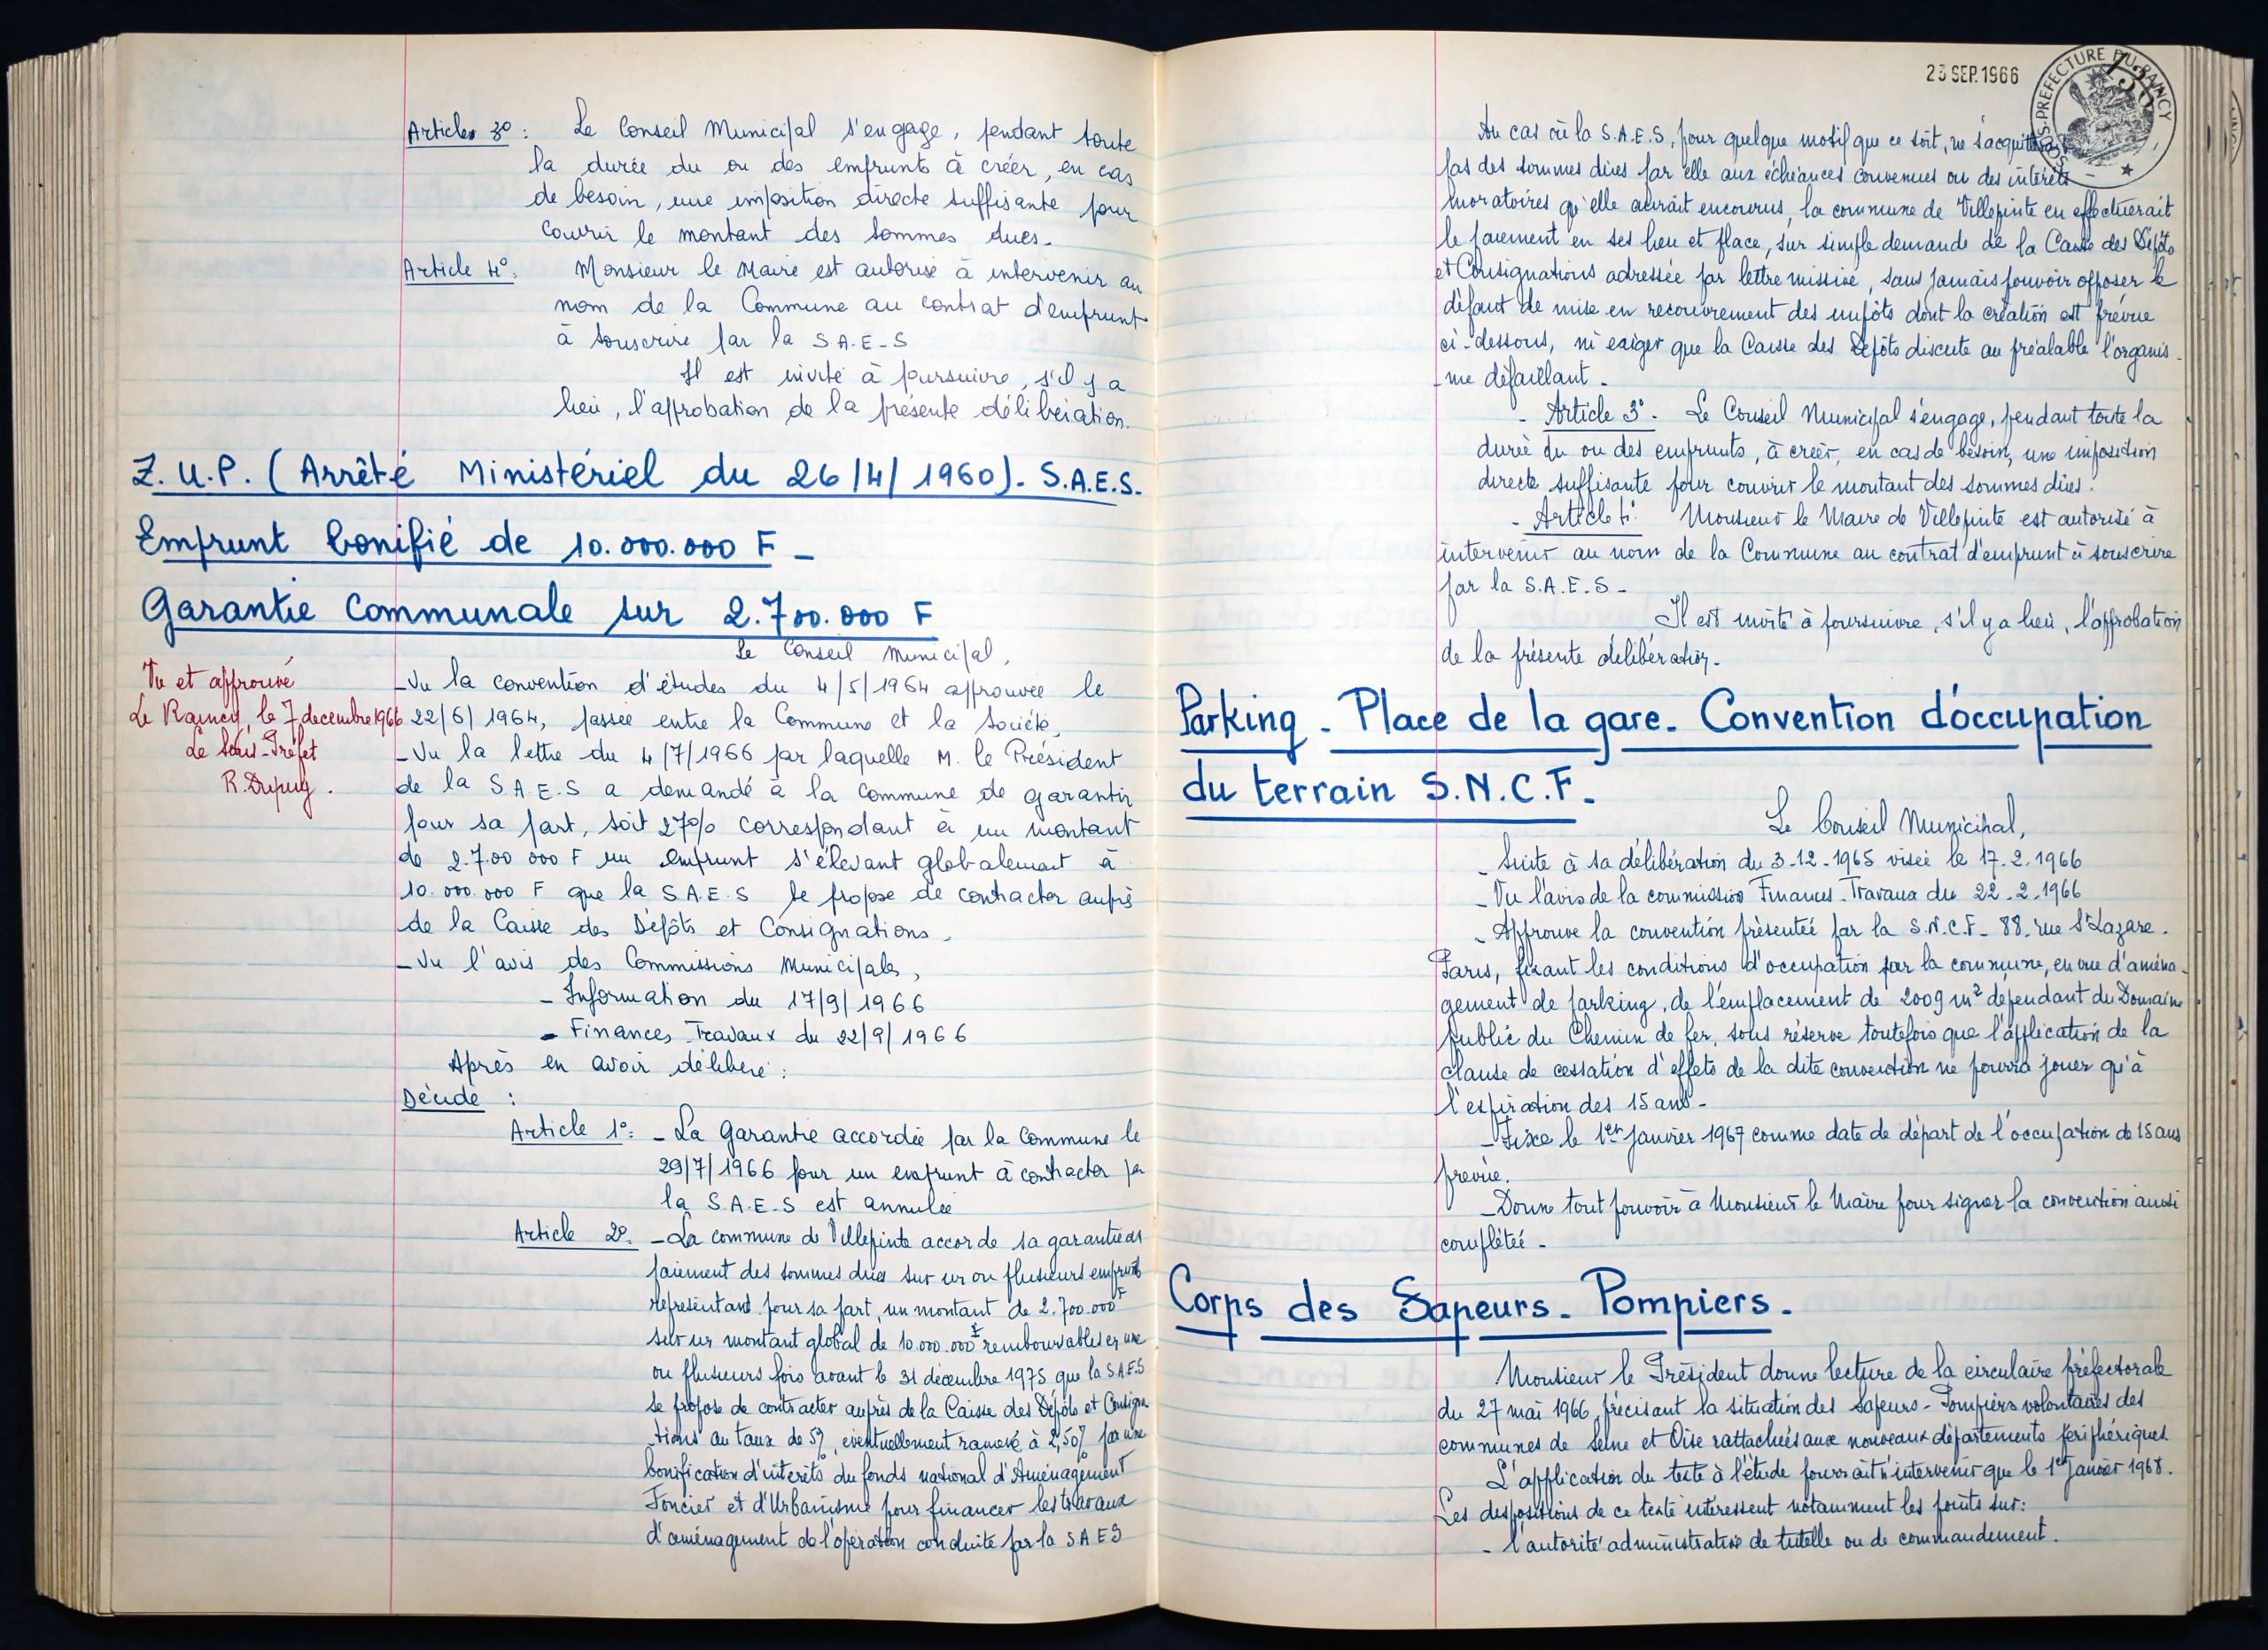 Article 3° : Le Conseil Municipal s'engage, pendant toute
la durée du ou des emprunts à créer, en cas
de besoin, une imposition directe suffisante pour
couvrir le montant des sommes dues.
Article 4°. Monsieur le Maire est autorisé à intervenir au
nom de la Commune au contrat d'emprunt
à souscrire par la S.A.E.S
Il est invité à poursuivre, s'il y a
lieu, l'approbation de la présente délibération.
Z.U.P. (Arrêté Ministériel du 26/4/1960). S.A.E.S.
Emprunt bonifié de 10.000.000 F -
Garantie Communale sur 2.700.000 F
Le Conseil Municipal,
Vu et approuvé
Le Raincy, le 7 decembre 1966
Le Sous-Préfet
R. Dupuy.
- Vu la convention d'études du 4/5/1964 approuvée le
22/6/1964, passée entre la Commune et la Société,
- Vu la lettre du 4/7/1966 par laquelle M. le Président
de la S.A.E.S a demandé à la Commune de garantir
pour sa part, soit 27% correspondant à un montant
de 2.700 000 F un emprunt s'élevant globalement à
10.000.000 F que la S.A.E.S se propose de contracter auprès
de la Caisse des Dépôts et Consignations,
- Vu l'avis des Commissions Municipales,
- Information du 17/9/1966
- Finances Travaux du 22/9/1966
Après en avoir délibéré :
Décide :
Article 1°: - La Garantie accordée par la Commune le
29/7/1966 pour un emprunt à contracter par
la S.A.E.S est annulée
Article 2°. - La commune de Villepinte accorde sa garantie au
paiement des sommes dues sur un ou plusieurs emprunts
représentant pour sa part, un montant de 2.700.000 F
sur un montant global de 10.000.000 F remboursables en une
ou plusieurs fois avant le 31 décembre 1975 que la S.A.E.S
se propose de contracter auprès de la Caisse des Dépôts et Consigna
-tions au taux de 5%, eventuellement ramené à 2,50% par une
bonification d'intérêts du fonds national d'Aménagement
Foncier et d'Urbanisme pour financer les travaux
d'aménagement de l'opération conduite par la S A E S
23 SEP. 1966
SOUS-PRÉFECTURE DU RAINCY
Au cas où la S.A.E.S, pour quelque motif que ce soit, ne s'acquitterait
pas des sommes dues par elle aux échéances convenues ou des intérêts
moratoires qu'elle aurait encourus, la commune de Villepinte en effectuerait
le paiement en ses lieu et place, sur simple demande de la Caisse des Dépôts
et Consignations adressée par lettre missive, sans jamais pouvoir opposer le
défaut de mise en recouvrement des impôts dont la création est prévue
ci-dessous, ni exiger que la Caisse des Dépôts discute au préalable l'organis-
-me défaillant.
- Article 3°. Le Conseil Municipal s'engage, pendant toute la
durée du ou des emprunts, à créer, en cas de besoin, une imposition
directe suffisante pour couvrir le montant des sommes dûes.
- Article 4° Monsieur le Maire de Villepinte est autorisé à
intervenir au nom de la Commune au contrat d'emprunt à souscrire
par la S.A.E.S -
Il est invité à poursuivre, s'il y a lieu, l'approbation
de la présente délibération.
Parking - Place de la gare. Convention d'occupation
du terrain S.N.C.F.
Le Conseil Municipal,
- Suite à sa délibération du 3-12-1965 visée le 17.2.1966
- Vu l'avis de la commission Finances-Travaux du 22.2.1966
- Approuve la convention présentée par la S.N.C.F- 88. rue St Lazare.
Paris, fixant les conditions d'occupation par la commune, en vue d'aména-
gement de parking, de l'emplacement de 2009 m² dépendant du Domaine
public du Chemin de fer, sous réserve toutefois que l'application de la
clause de cessation d'effets de la dite convention ne pourra jouer qu'à
l'expiration des 15 ans -
- Fixe le 1er Janvier 1967 comme date de départ de l'occupation de 15 ans
prévue.
- Donne tout pouvoir à Monsieur le Maire pour signer la convention ainsi
complétée -
Corps des Sapeurs-Pompiers.
Monsieur le Président donne lecture de la circulaire préfectorale
du 27 mai 1966, précisant la situation des Sapeurs-Pompiers volontaires des
communes de Seine et Oise rattachées aux nouveaux départements périphériques.
L'application du texte à l'étude pourrait n'intervenir que le 1er Janvier 1968.
Les dispositions de ce texte intéressent notamment les points sur:
- l'autorité administrative de tutelle ou de commandement.